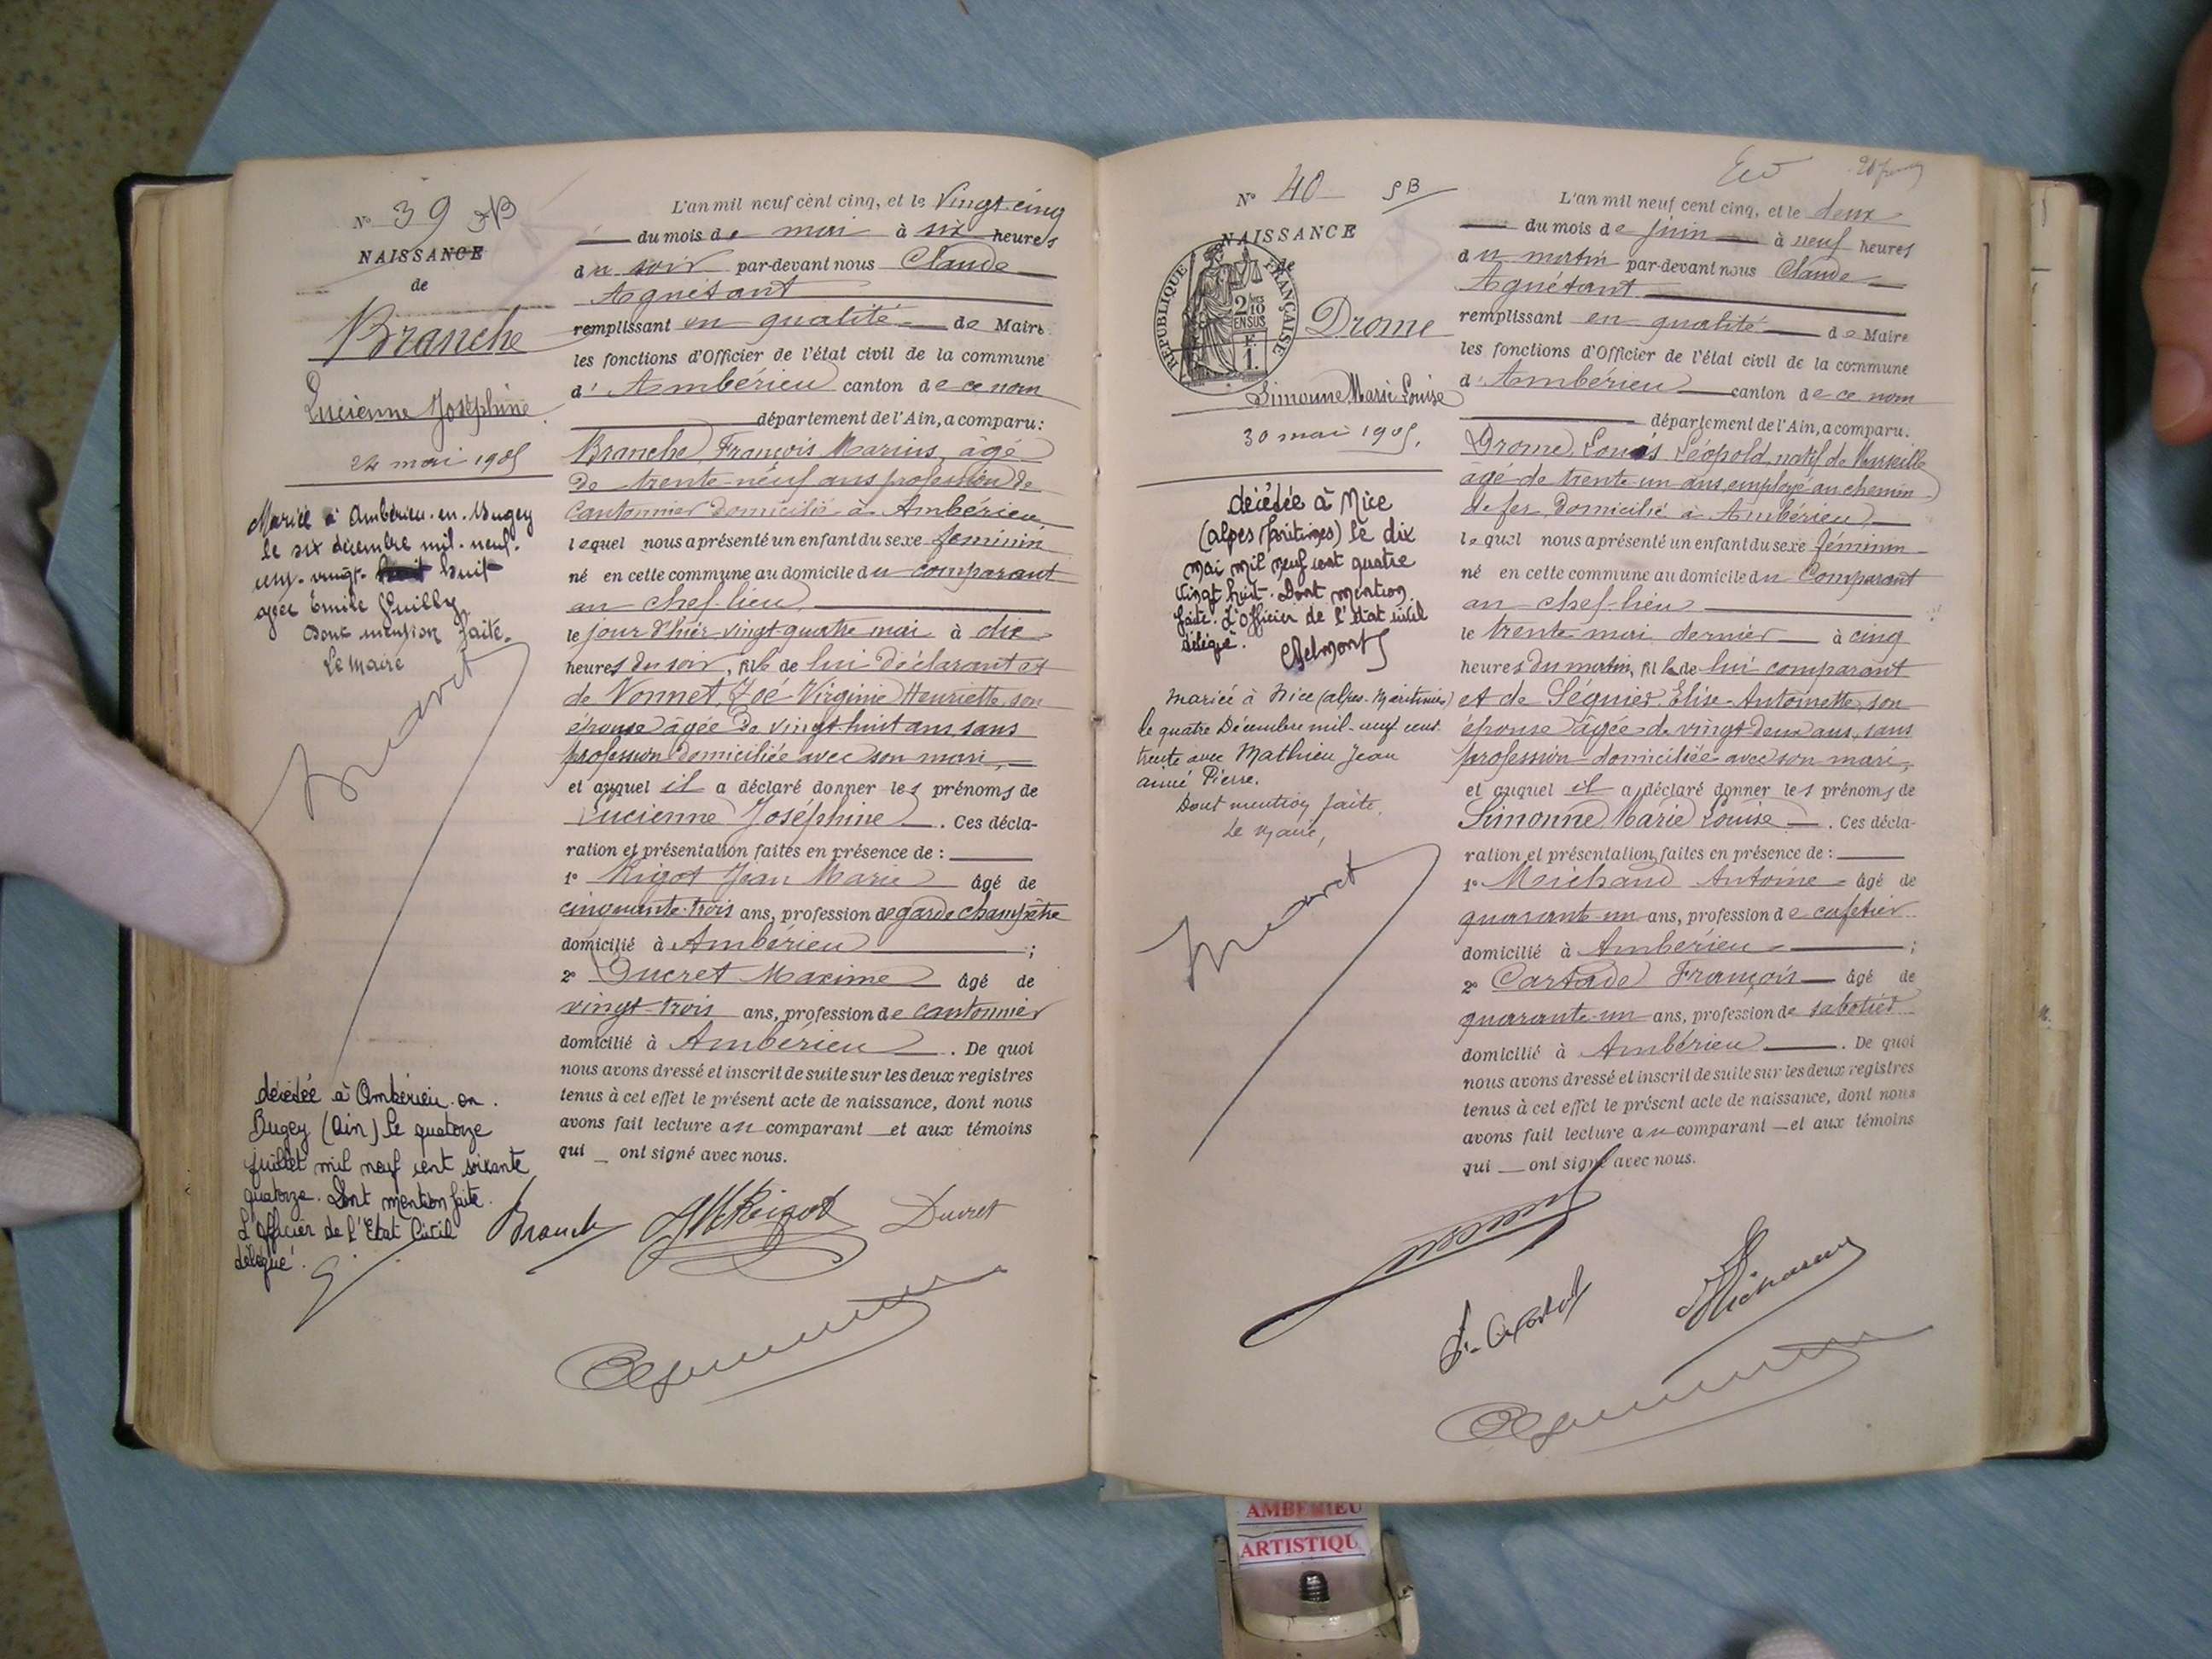 N° 39
NAISSANCE
de
Branche
Lucienne Joséphine
24 mai 1905
Mariée à Ambérieu-en-Bugey
le six décembre mil-neuf-
cent-vingt- huit
avec Emile
Dont mention faite.
Le Maire
décédée à Ambérieu-en-
Bugey (Ain) le quatorze
juillet mil neuf cent soixante
quatorze. Dont mention faite.
L'Officier de l'Etat Civil
délégué.
L'an mil neuf cent cinq, et le vingt-cinq
du mois de mai à six heures
du soir par-devant nous Claude
Agnétant
remplissant en qualité de Maire
les fonctions d'Officier de l'état civil de la commune
d' Ambérieu canton de ce nom
département de l'Ain, a comparu:
Branche, François Marius, âgé
de trente-neuf ans profession de
Cantonnier domicilié à Ambérieu,
lequel nous a présenté un enfant du sexe féminin
né en cette commune au domicile du comparant
au chef-lieu
le jour d'hier vingt-quatre mai à dix
heures du soir, fille de lui déclarant et
de Vonnet, Zoé Virginie Henriette, son
épouse âgée de vingt-huit ans sans
profession domiciliée avec son mari,
et auquel il a déclaré donner les prénoms de
Lucienne Joséphine . Ces décla-
ration et présentation faites en présence de :
1° Rigot Jean Marie âgé de
cinquante-trois ans, profession de garde champêtre
domicilié à Ambérieu ;
2° Ducret Maxime âgé de
vingt-trois ans, profession de cantonnier
domicilié à Ambérieu . De quoi
nous avons dressé et inscrit de suite sur les deux registres
tenus à cet effet le présent acte de naissance, dont nous
avons fait lecture au comparant et aux témoins
qui ont signé avec nous.
Branche JM Rigot Ducret
N° 40
NAISSANCE
de
RÉPUBLIQUE FRANÇAISE
2/10
EN SUS
F.
1.
Drome
Simonne Marie Louise
30 mai 1905.
décédée à Nice
(alpes Maritimes) le dix
mai mil neuf cent quatre
vingt huit. Dont mention
faite. L'officier de l'état civil
délégué.
Mariée à Nice (alpes-Maritimes)
le quatre Décembre mil-neuf cent
trente avec Mathieu Jean
aimé Pierre.
Dont mention faite,
Le Maire,
L'an mil neuf cent cinq, et le deux
du mois de juin à neuf heures
du matin par-devant nous Claude
Agnétant
remplissant en qualité de Maire
les fonctions d'Officier de l'état civil de la commune
d' Ambérieu canton de ce nom
département de l'Ain, a comparu.
Drome, Louis Léopold natif de Marseille
âgé de trente-un ans, employé au chemin
de fer, domicilié à Ambérieu,
lequel nous a présenté un enfant du sexe féminin
né en cette commune au domicile du Comparant
au chef-lieu
le trente mai dernier à cinq
heures du matin, fille de lui comparant
et de Séguier, Elise-Antoinette, son
épouse âgée de vingt-deux ans, sans
profession domiciliée avec son mari,
et auquel il a déclaré donner les prénoms de
Simonne Marie Louise . Ces décla-
ration et présentation faites en présence de :
1° Michaud Antoine âgé de
quarante-un ans, profession de cafetier
domicilié à Ambérieu ;
2° François âgé de
quarante-un ans, profession de sabotier
domicilié à Ambérieu . De quoi
nous avons dressé et inscrit de suite sur les deux registres
tenus à cet effet le présent acte de naissance, dont nous
avons fait lecture au comparant et aux témoins
qui ont signé avec nous.
AMBERIEU
ARTISTIQU